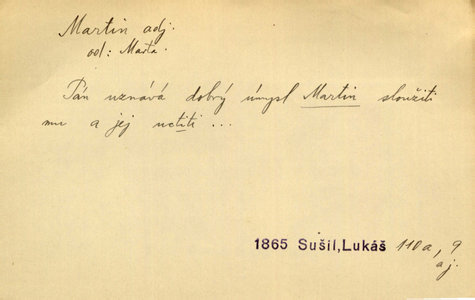 Martin adj.
od: Marta.
Pán uznává dobrý úmysl Martin sloužiti
mu a jej uctíti ...
1865 Sušil, Lukáš 110a, 9
aj.